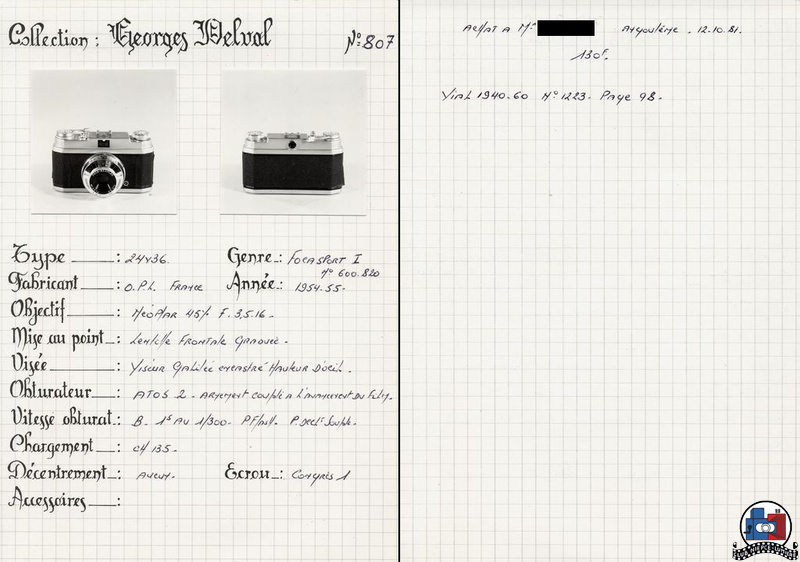 Collection : Georges Delval N° 807
Type : 24x36. Genre : Focasport I
N° 600.820
Fabricant : O.P.L. France Année : 1954-55-
Objectif : Néoplar 45% F. 3,5.16-
Mise au point : Lentille Frontale Graduée -
Visée : Viseur Galilée encastré Hauteur D'oeil -
Obturateur : ATOS 2 - Armement couplé à l'avancement du Film.
Vitesse obturat. : B. 1s Au 1/300- P.Flash. P. Declr Souple.
Chargement : cH 135-
Décentrement : Aucun. Ecrou : Congrès 1
Accessoires :
Achat à Mr Angoulème . 12.10.81.
130F.
Vial 1940.60 N° 1223. Page 98.